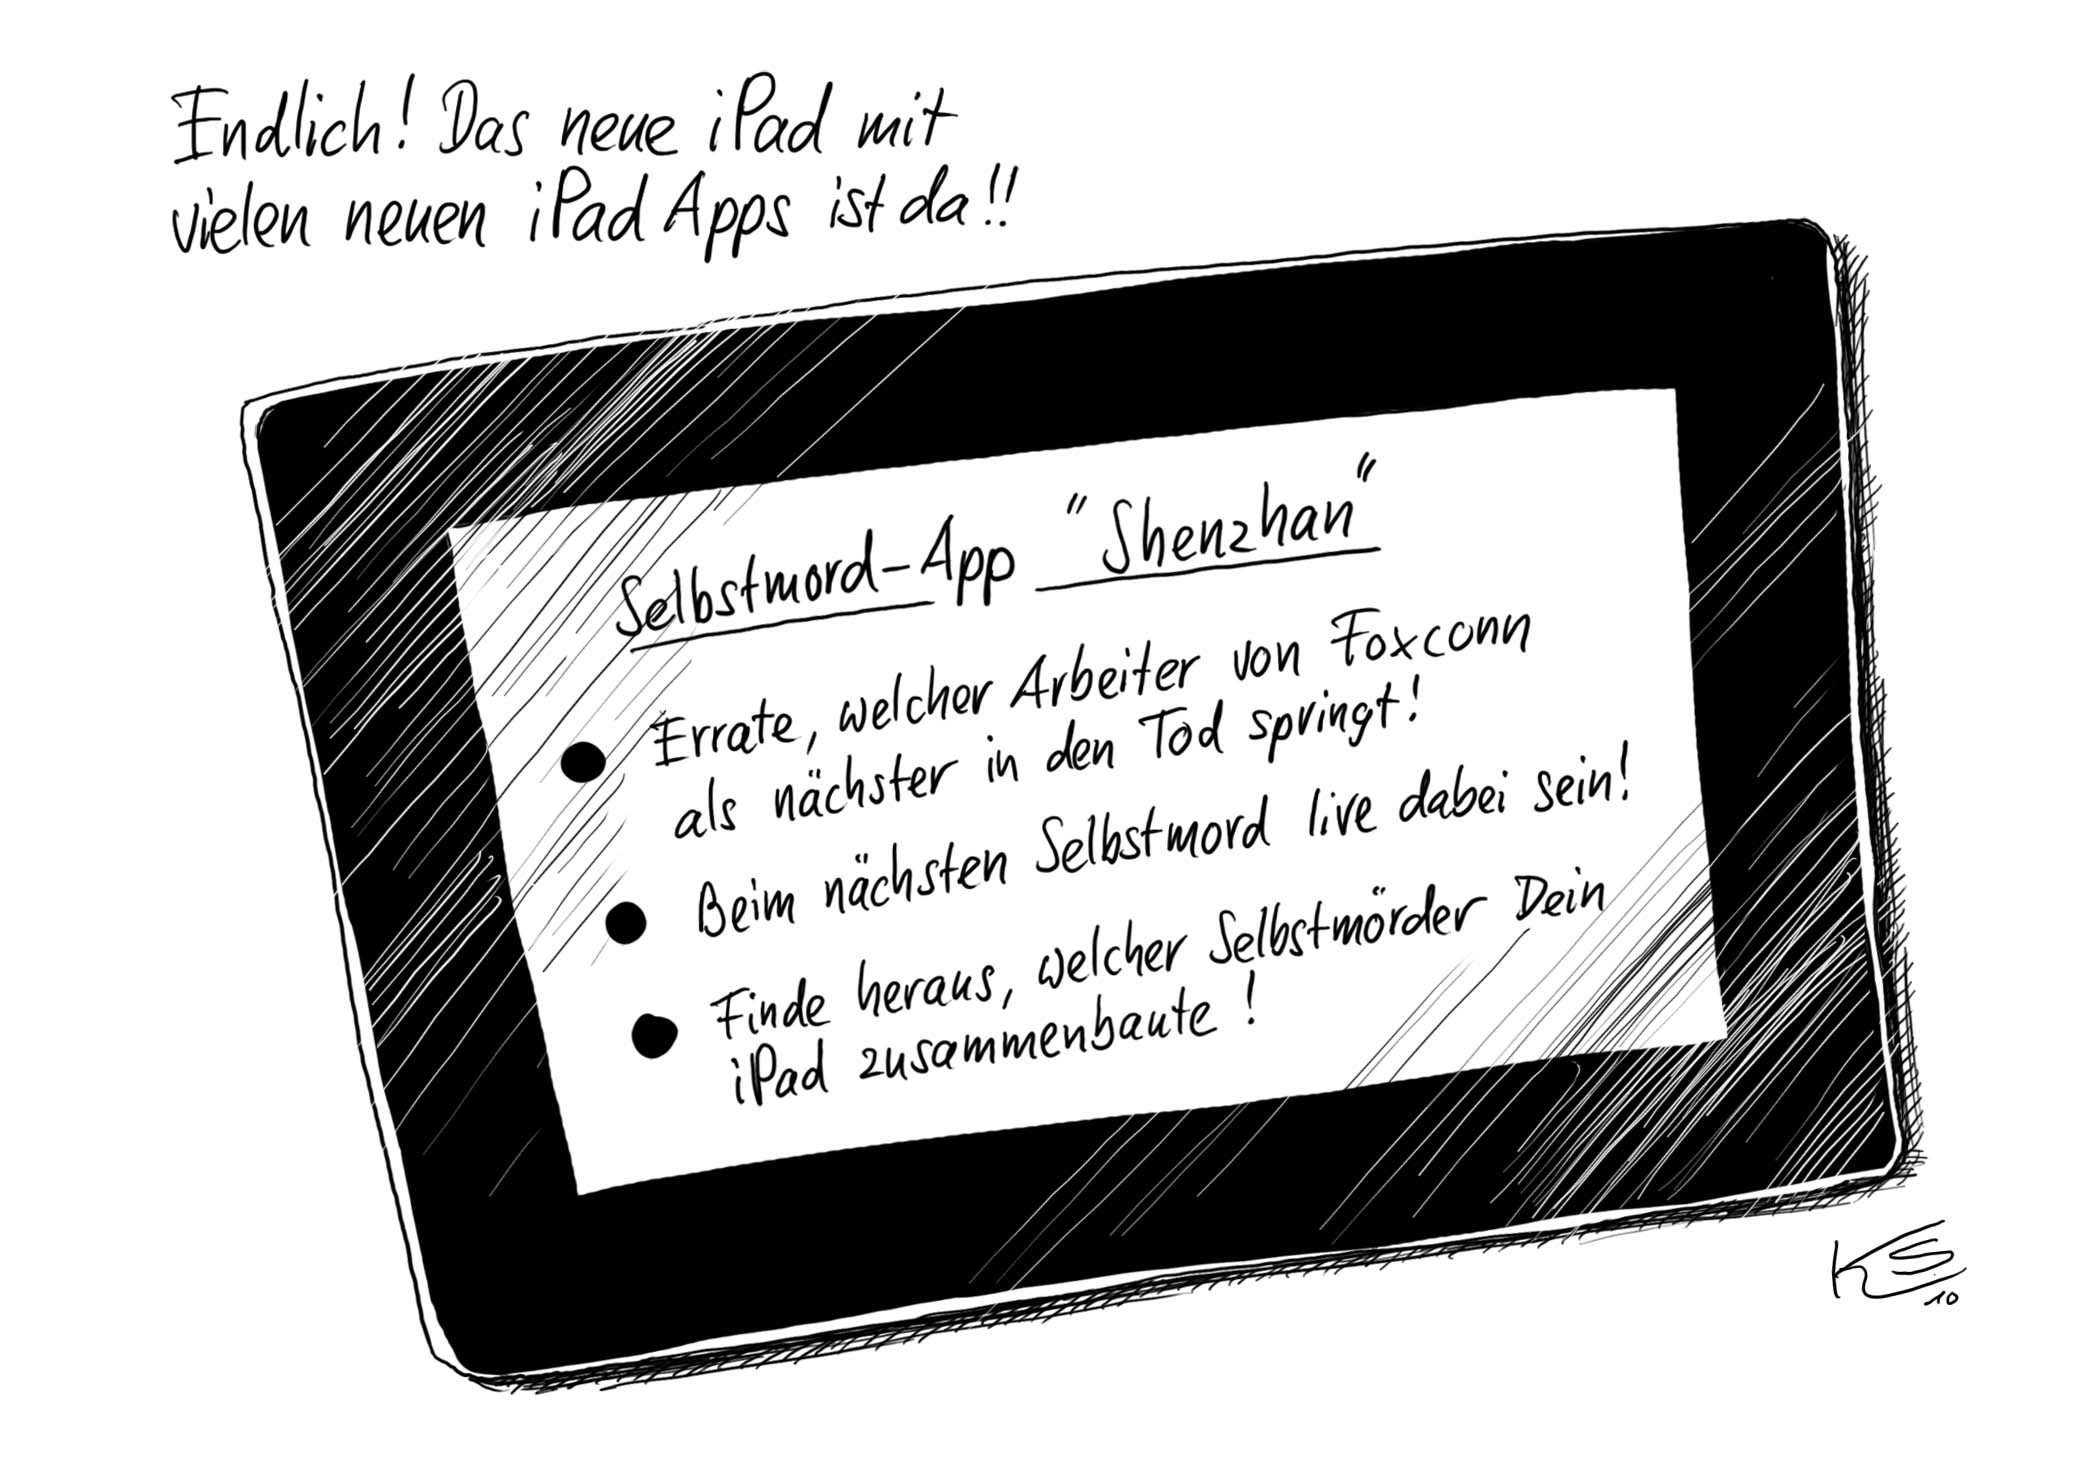 Endlich! Das neue iPad mit
vielen neuen iPad Apps ist da!!
Selbstmord-App "Shenzhan"
● Errate, welcher Arbeiter von Foxconn
als nächster in den Tod springt!
● Beim nächsten Selbstmord live dabei sein!
● Finde heraus, welcher Selbstmörder Dein
iPad zusammenbaute!
KS
10